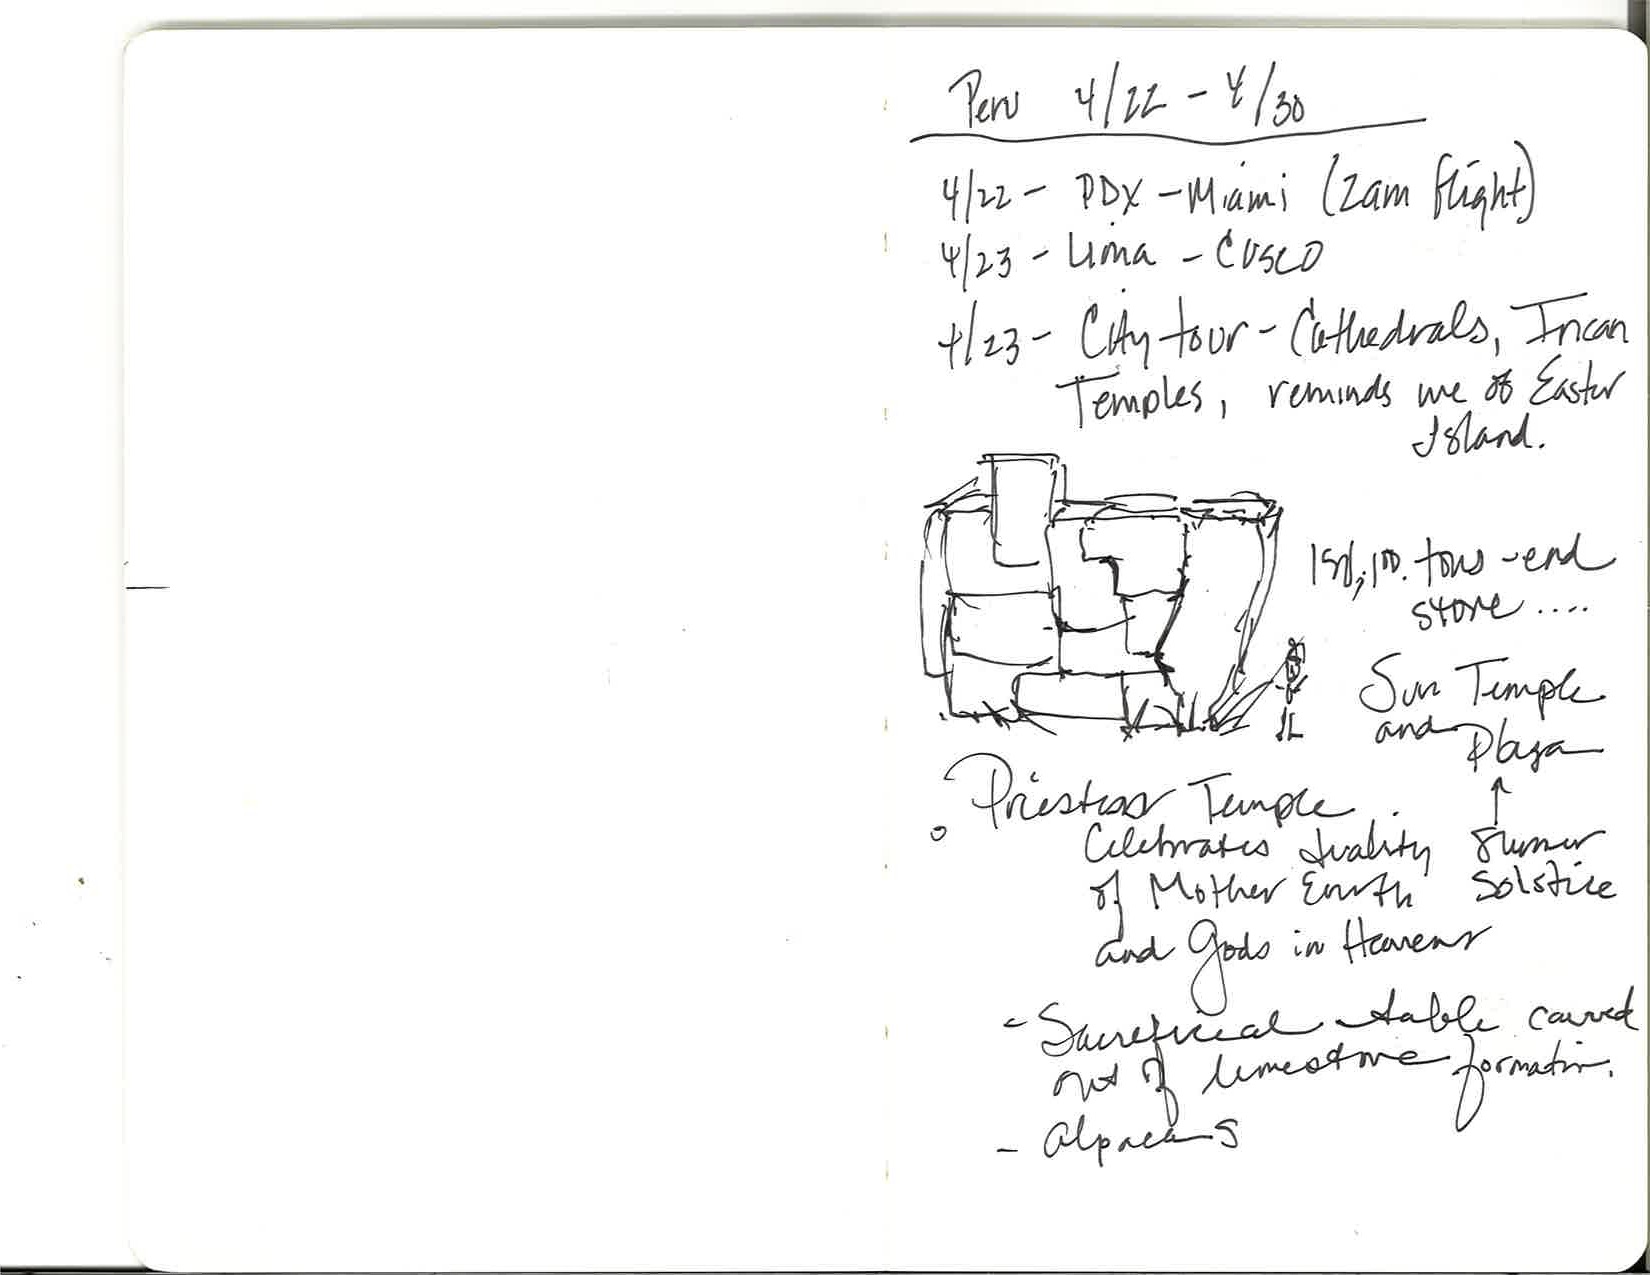 Peru 4/22 - 4/30
4/22 - PDX - Miami (2am flight)
4/23 - Lima - Cusco
4/23 - City tour - Cathedrals, Incan
Temples, reminds me of Easter
Island.
tons - end
stone ....
Sun Temple
and Plaza
Summer
Solstice
Priestess Temple
Celebrates duality
of Mother Earth
and Gods in Heavens
- Sacreficial table carved
out of limestone formation.
- Alpacas